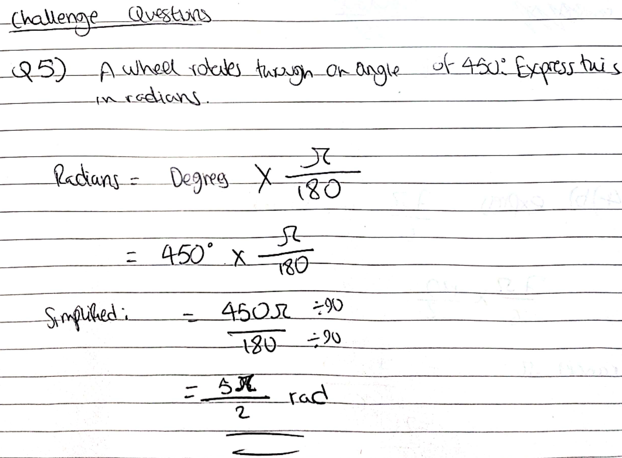 Challenge Questions
Q5) A wheel rotates through an angle of 450°. Express this
in radians.
Radians = Degrees × π/180
= 450° × π/180
Simplified: = 450π/180 ÷90 ÷90
= 5π/2 rad